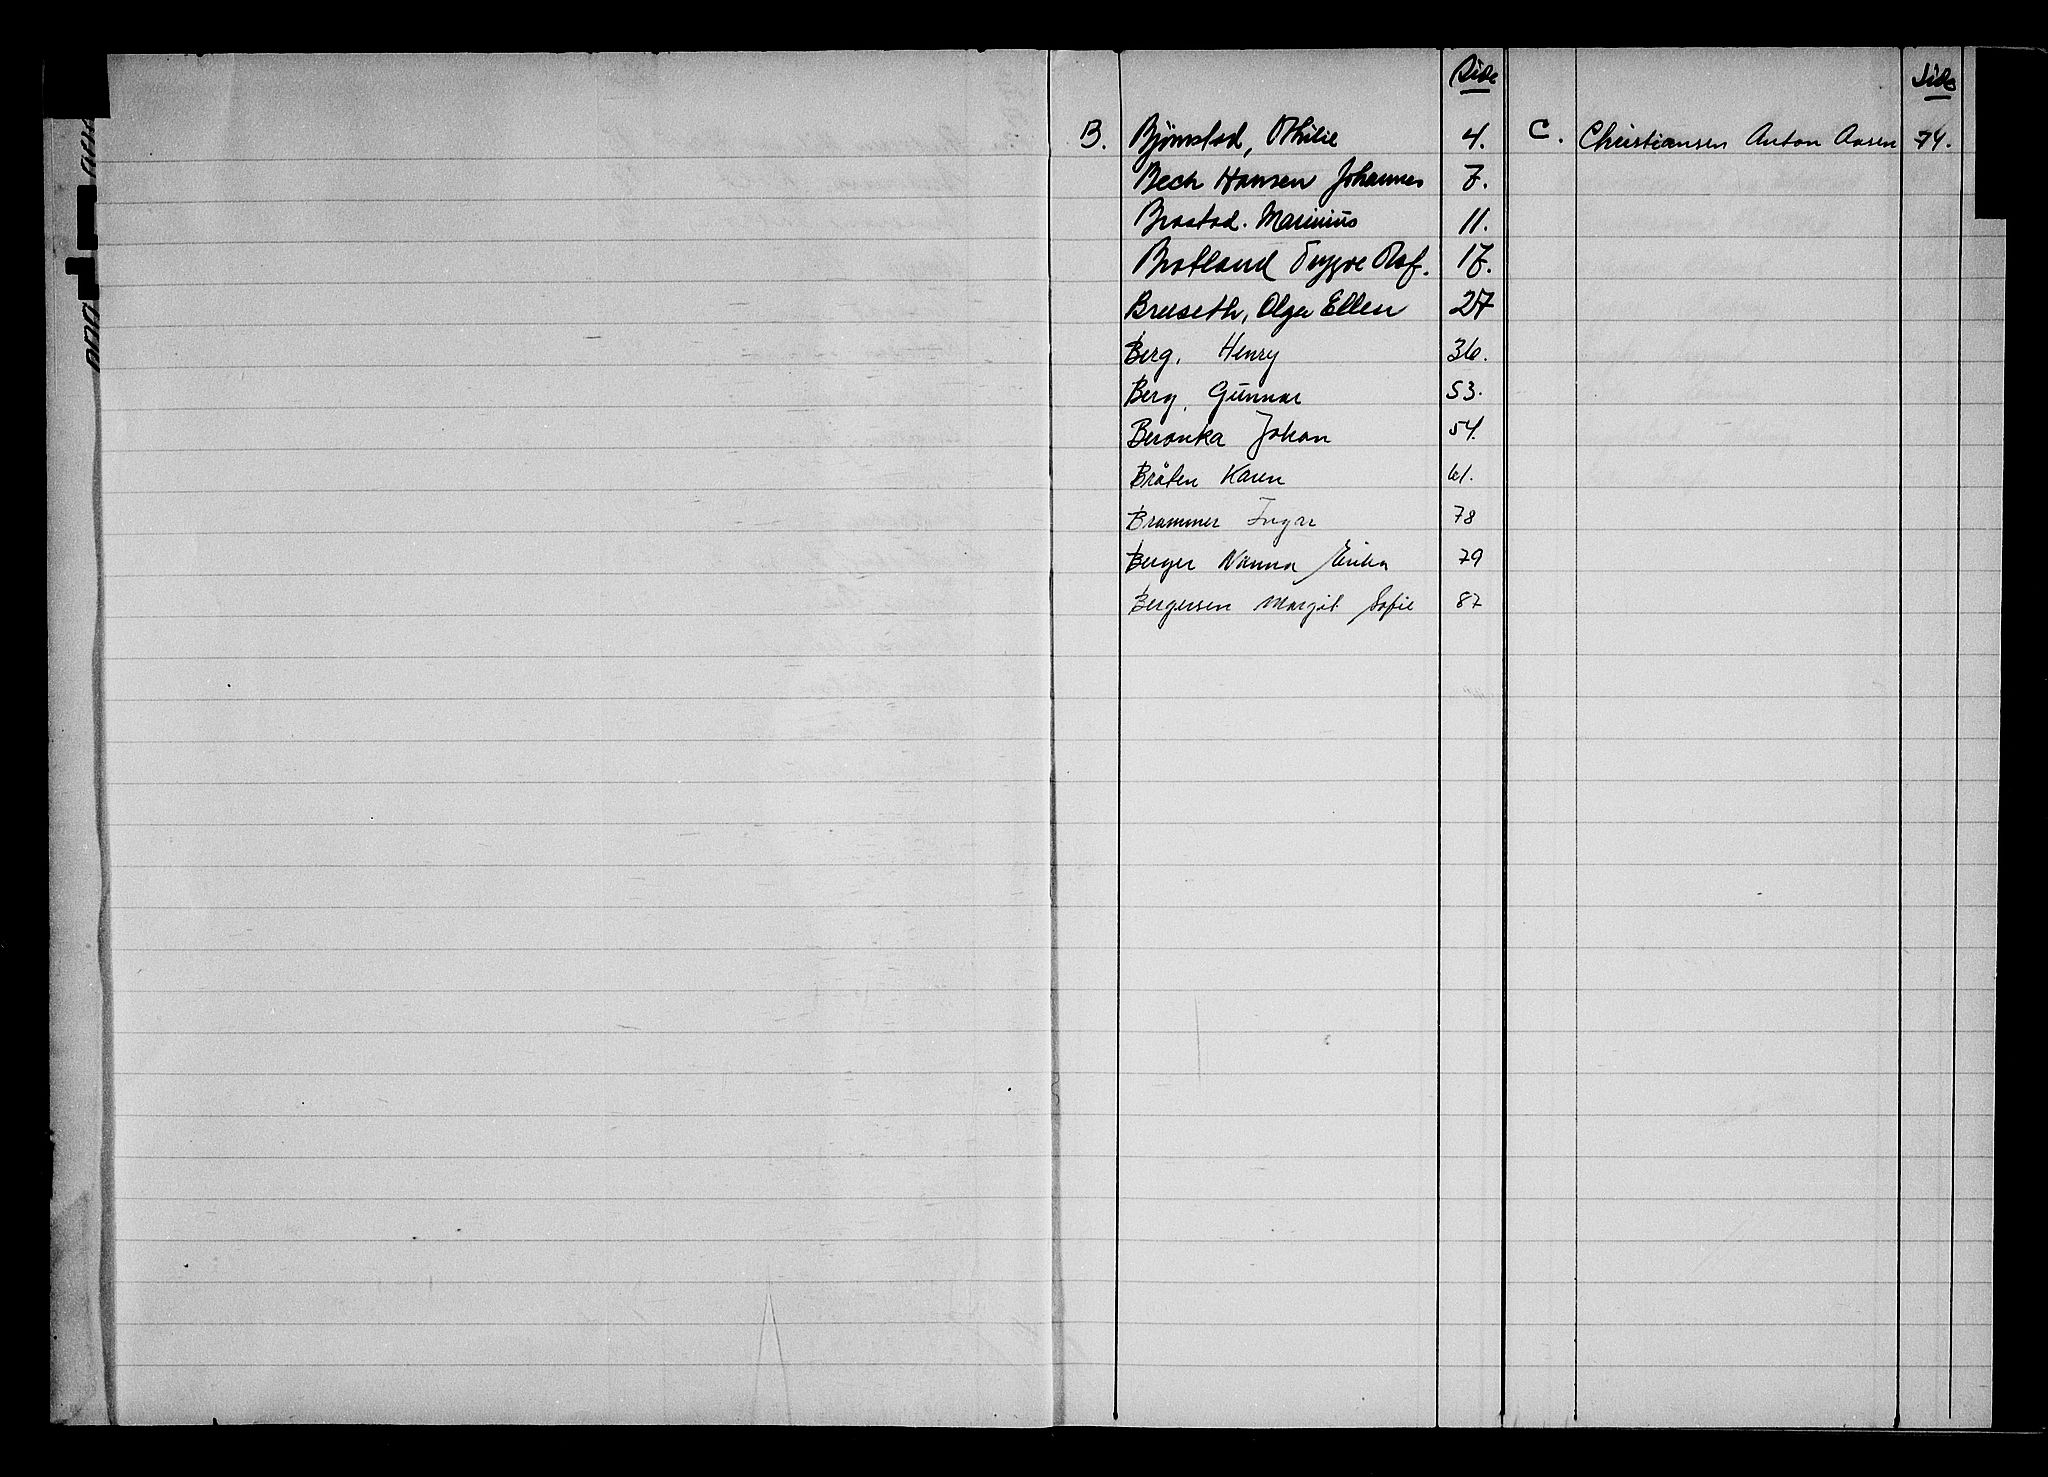 Side
B. Bjørnstad, Othilie 4.
Bech Hansen Johannes 7.
Brastad. Marinius 11.
Bratland Trygve Olaf. 17.
Breiseth, Olga Ellen 27
Berg, Henry 36.
Berg, Gunnar 53.
Beronka Johan 54.
Bråten Karen 61.
Brammer Ingar 78
Berger Nanna Erika 79
Bergersen Margit Sofie 87
Side
C. Christiansen Anton Aasen 74.